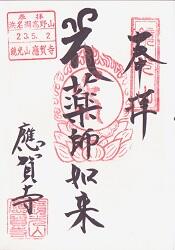 奉拝
薬師如来
應賀寺
奉拝
浜名湖高野山
23.5.2
鏡光山應賀寺